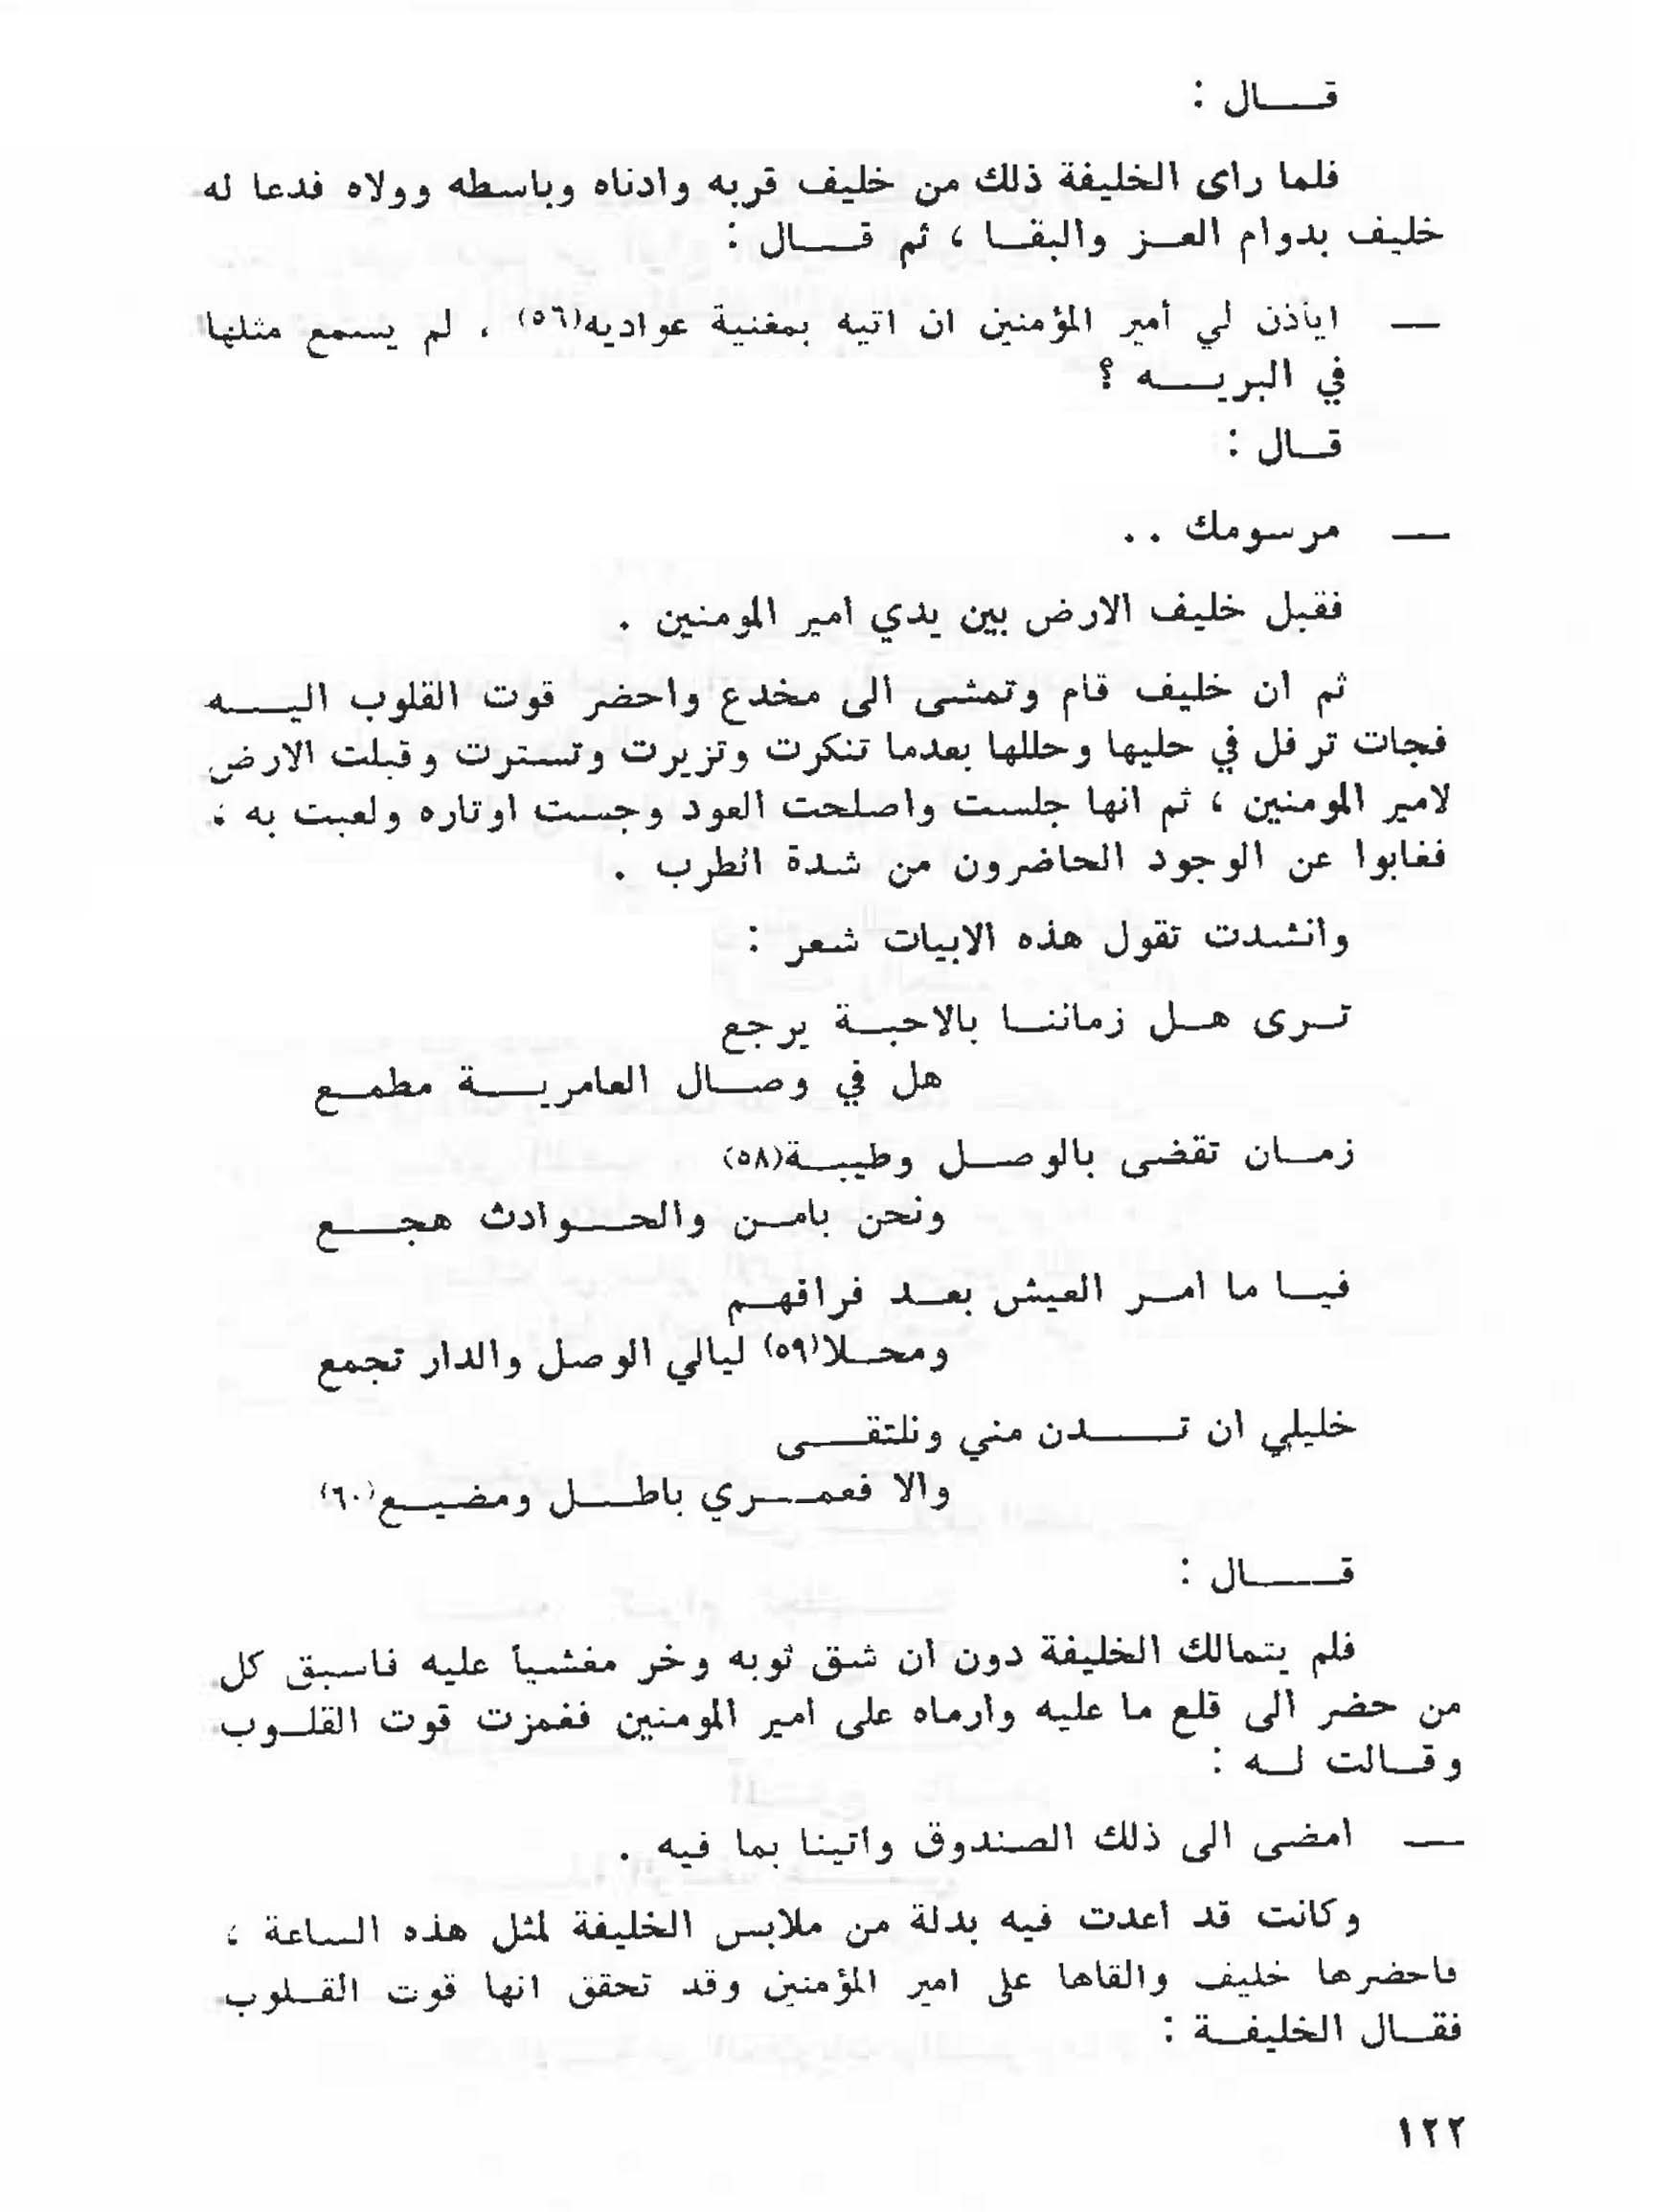 قـــال :
فلما راى الخليفة ذلك من خليف قربه وادناه وباسطه وولاه فدعا له
خليف بدوام العـز والبقـا ، ثم قـــال :
— اياذن لي أمير المؤمنين ان اتيه بمغنية عواديه(٥٦) ، لم يسمع مثلها
في البريـــه ؟
قــال :
— مرسومك ..
فقبل خليف الارض بين يدي امير المومنين .
ثم ان خليف قام وتمشى الى مخدع واحضر قوت القلوب اليـــه
فجات ترفل في حليها وحللها بعدما تنكرت وتزيرت وتسترت وقبلت الارض
لامير المومنين ، ثم انها جلست واصلحت العود وجست اوتاره ولعبت به ،
فغابوا عن الوجود الحاضرون من شدة الطرب .
وانشدت تقول هذه الابيات شعر :
تـرى هـل زماننـا بالاحبـة يرجع
هل في وصـال العامريـــة مطمـع
زمـان تقضى بالوصـل وطيبـة(٥٨)
ونحن بامـن والحـــوادث هجـــع
فيـا ما امـر العيش بعـد فراقهـم
ومحـلا(٥٩) ليالي الوصل والدار تجمع
خليلي ان تـــدن مني ونلتقـــى
والا فعمـــري باطـــل ومضيـــع(٦٠)
قـــال :
فلم يتمالك الخليفة دون ان شق ثوبه وخر مغشياً عليه فاسبق كل
من حضر الى قلع ما عليه وارماه على امير المومنين فغمزت قوت القلـوب
وقـالت لـه :
— امضى الى ذلك الصندوق واتينا بما فيه .
وكانت قد اعدت فيه بدلة من ملابس الخليفة لمثل هذه الساعة ،
فاحضرها خليف والقاها على امير المؤمنين وقد تحقق انها قوت القـلوب
فقـال الخليفـة :
١٢٢